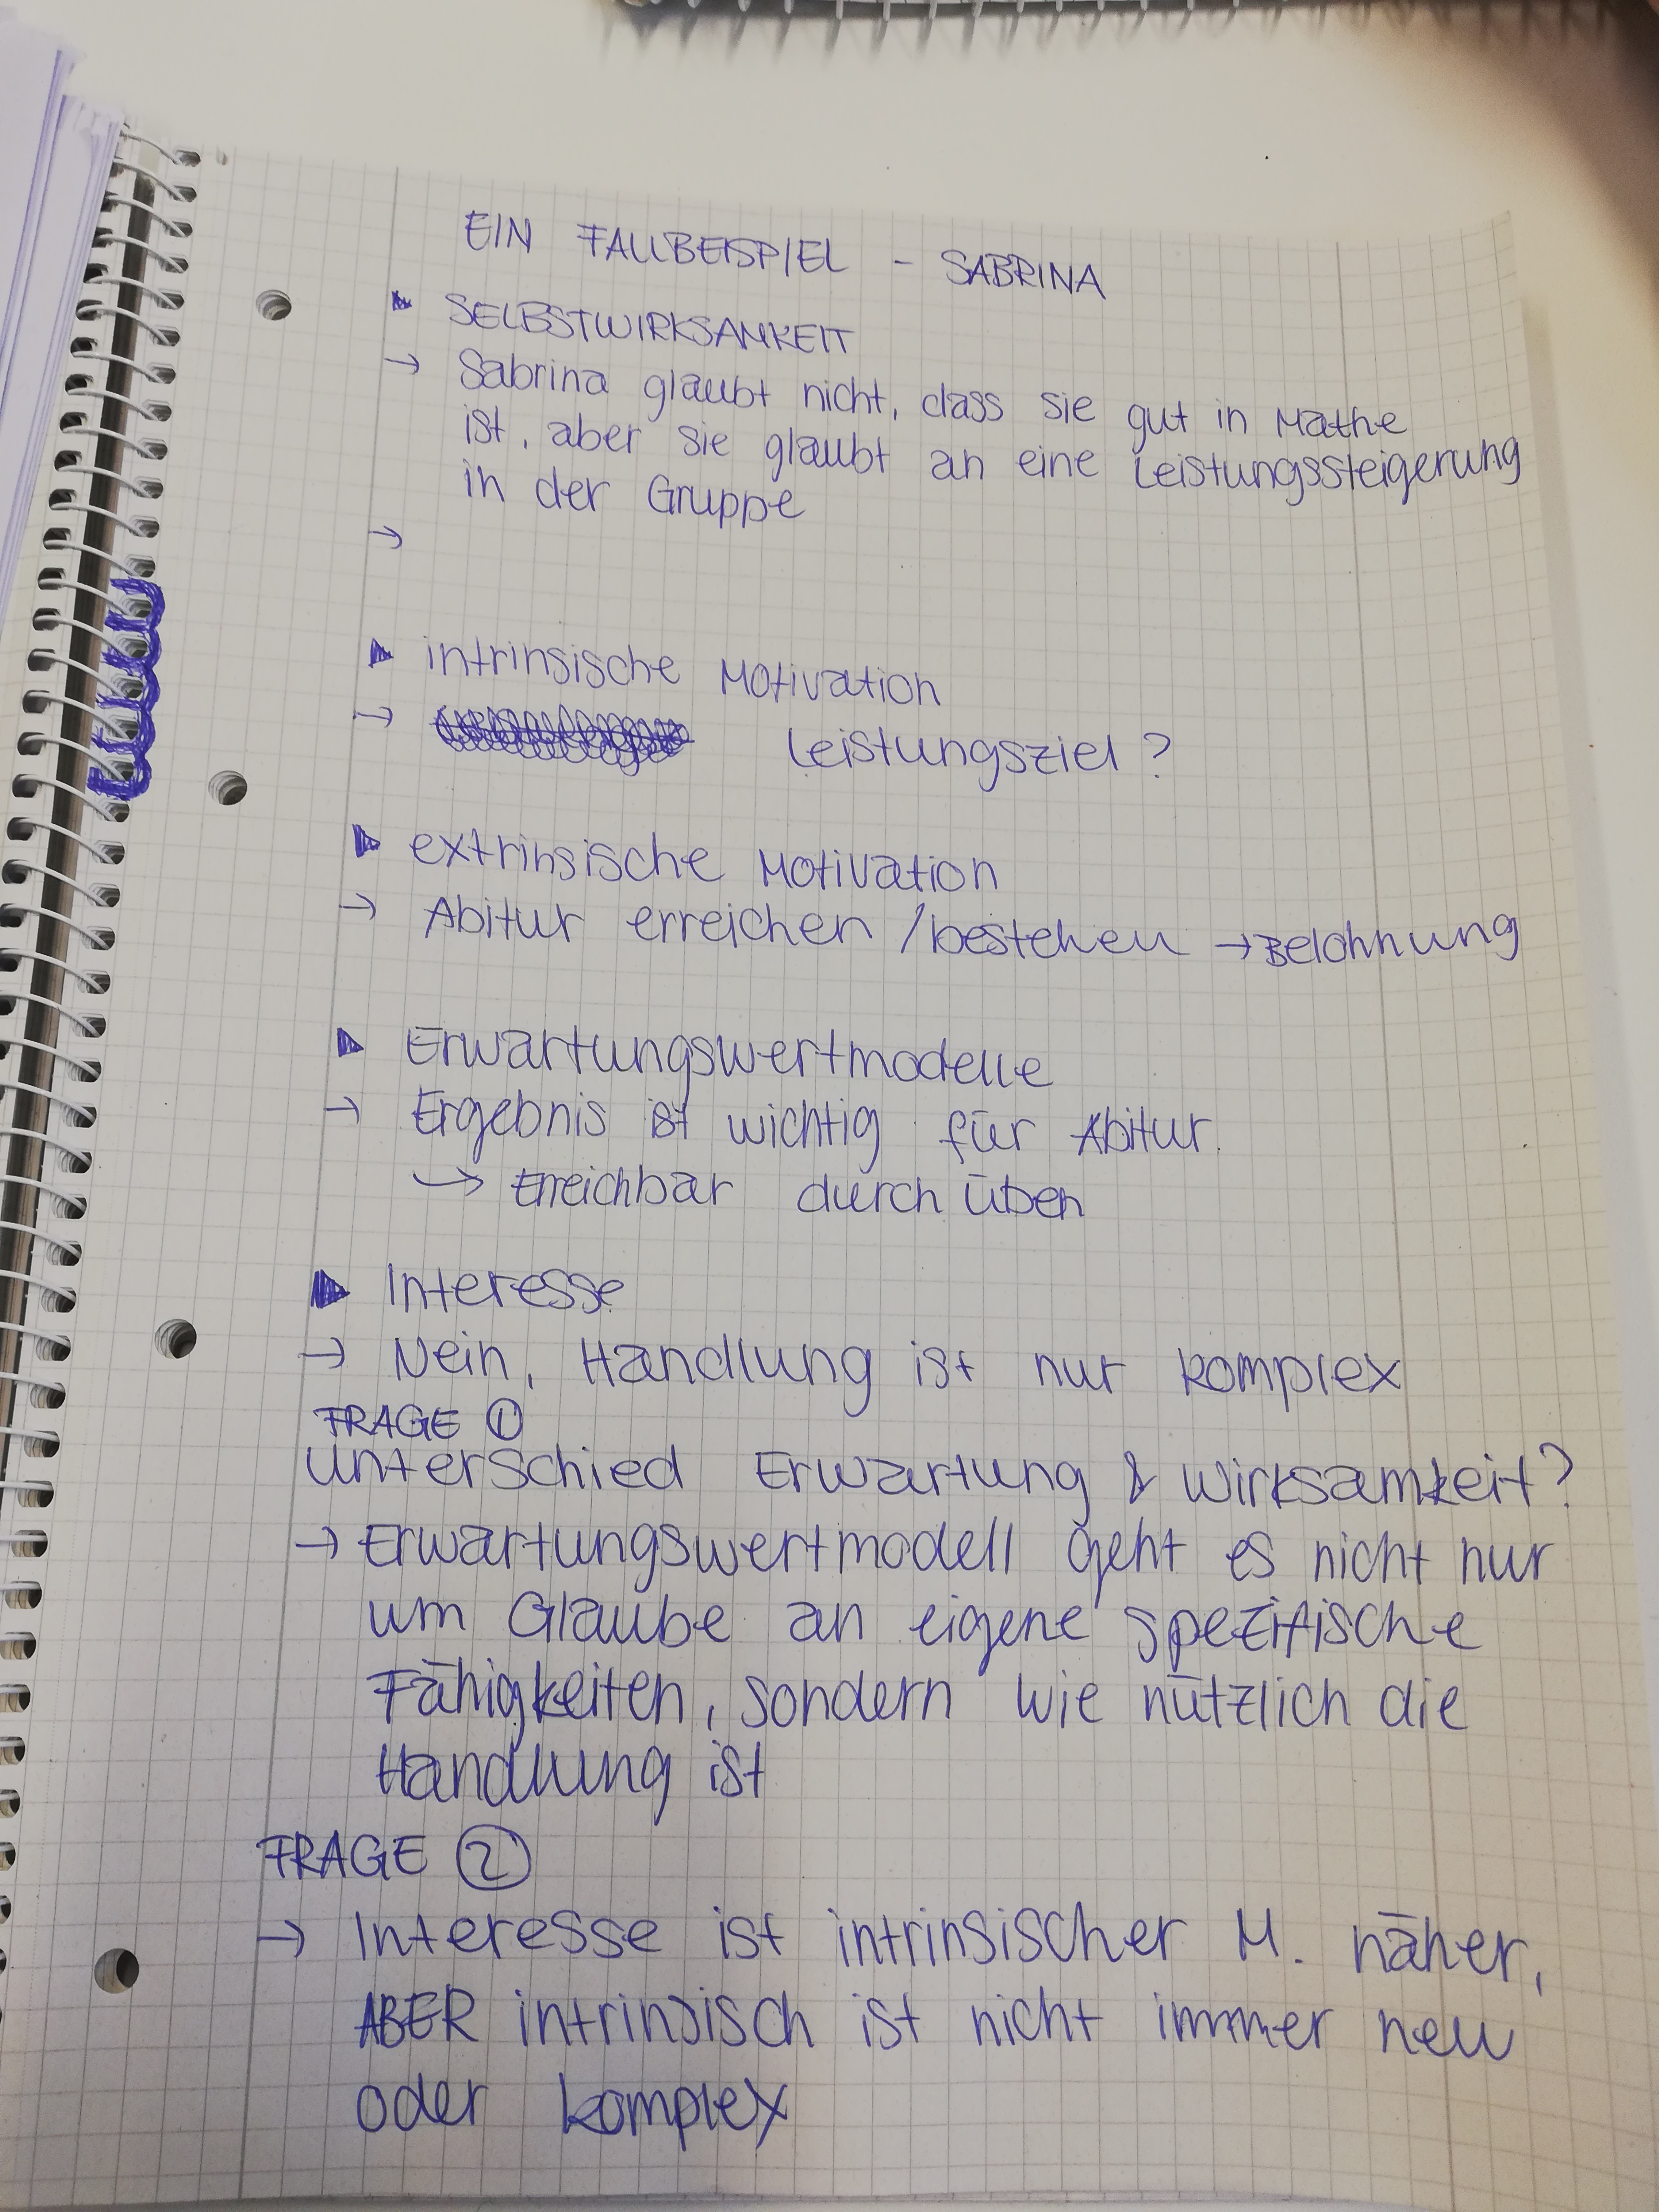 EIN FALLBEISPIEL - SABRINA
▶ SELBSTWIRKSAMKEIT
→ Sabrina glaubt nicht, dass sie gut in Mathe
ist, aber sie glaubt an eine Leistungssteigerung
in der Gruppe
→
▶ intrinsische Motivation
→ Leistungsziel?
▶ extrinsische Motivation
→ Abitur erreichen / bestehen → Belohnung
▶ Erwartungswertmodelle
→ Ergebnis ist wichtig für Abitur.
↪ Erreichbar durch Üben
▶ Interesse
→ Nein, Handlung ist nur komplex
FRAGE ①
Unterschied Erwartung & Wirksamkeit?
→ Erwartungswertmodell geht es nicht nur
um Glaube an eigene spezifische
Fähigkeiten, sondern wie nützlich die
Handlung ist
FRAGE ②
→ Interesse ist intrinsischer M. näher,
ABER intrinsisch ist nicht immer neu
oder komplex